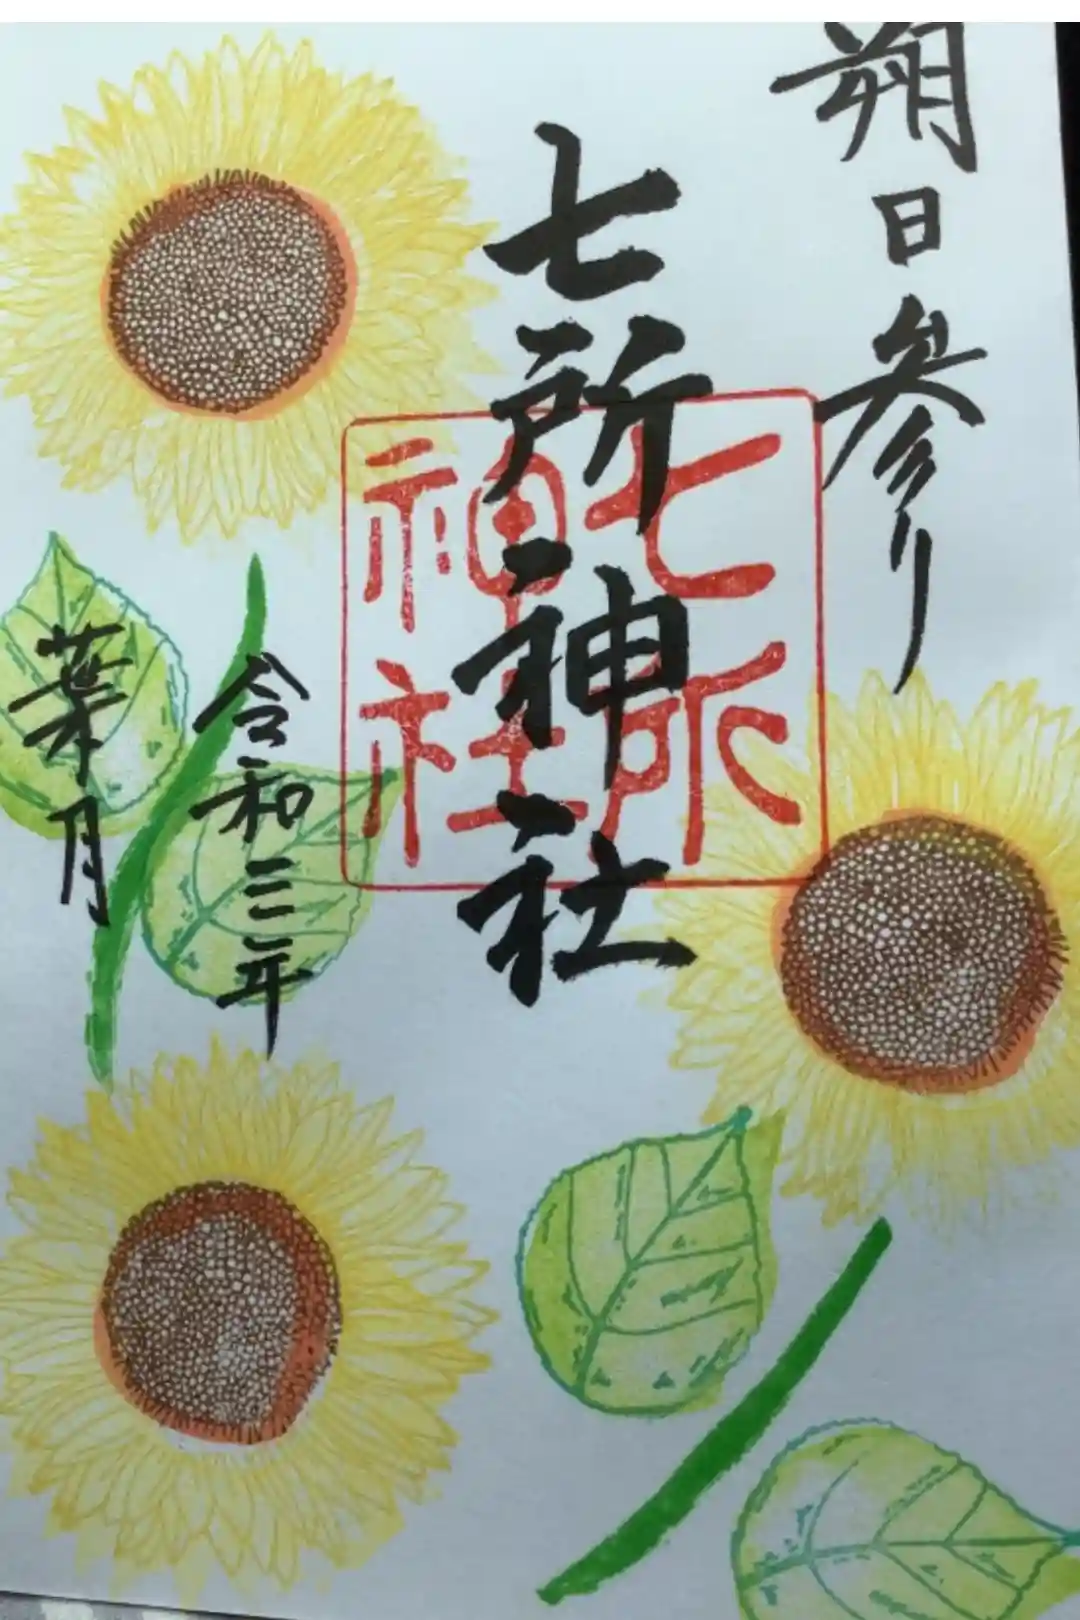 朔日参り
七所神社
七所
神社
令和三年
葉月